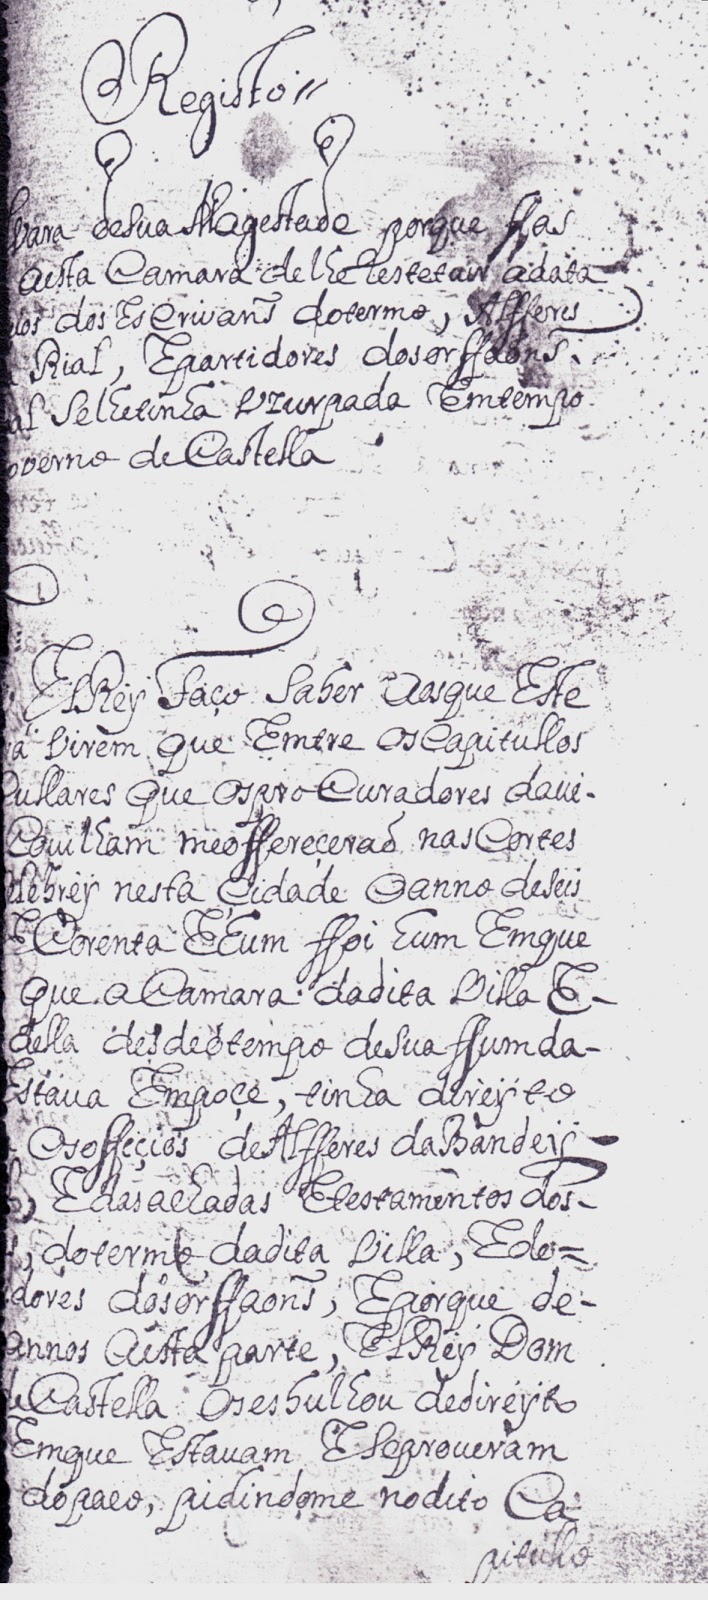 Registo //
vara de sua Magestade porque fas
a esta Camara de lhe restetuir a data
dos Escrivans do termo, Alfferes
Rial, E partidores dos orffaons.
al se lhe tinha Uzurpada Em tempo
overno de Castella
El Rey faço saber Aos que Este
ra virem que Emtre os Capitullos
cullares que os pro Curadores da vi-
Couilham me offereçerao nas Cortes
celebrey nesta Çidade o anno de seis
E Corenta E hum ffoi hum Em que
que a Camara da dita Villa E-
della desde o tempo de sua ffumda-
Estaua Em poçe, tinha direyto
Os offiçios de Alfferes da Bandeyr-
E das achadas E testamentos dos-
, do termo da dita Villa, E do=
dores dos orffaons, E porque de-
annos a esta parte, El Rey Dom
de Castella os esbulhou de direyto
Em que Estauam E se proueram
do paco, pidindome no dito Ca-
pitullo